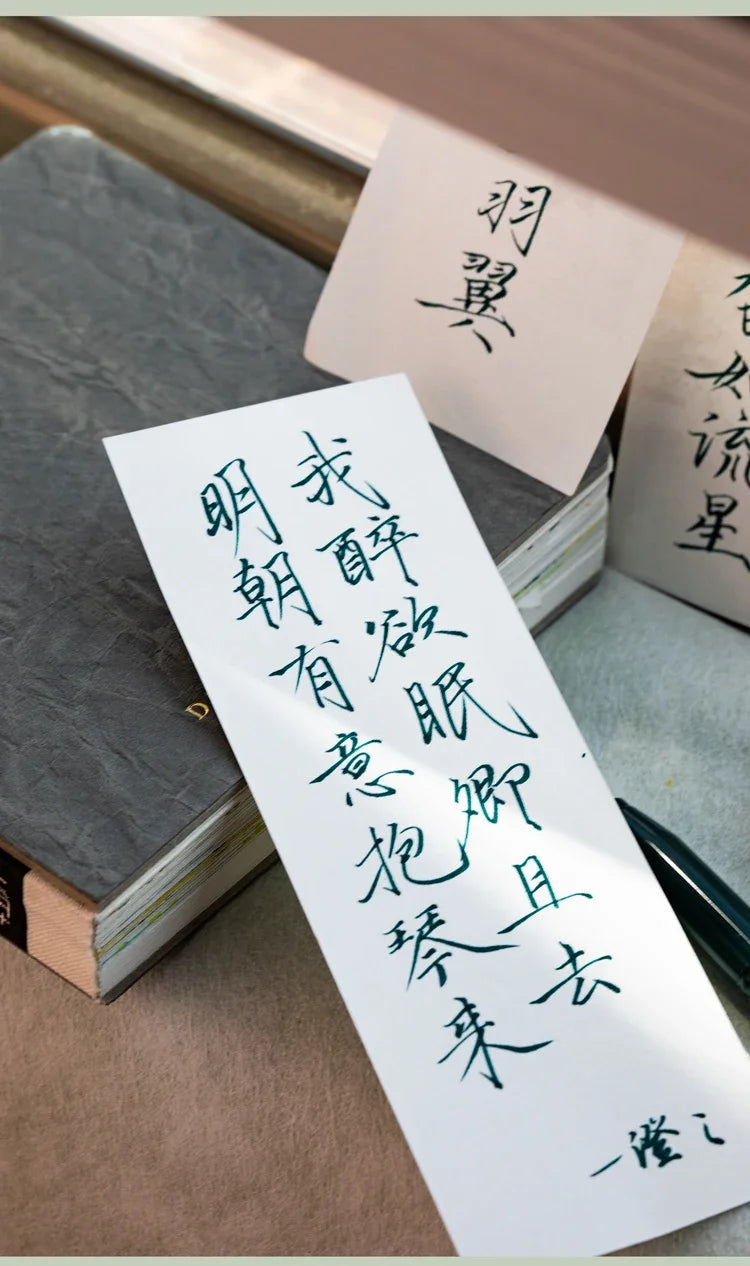 我醉欲眠卿且去
明朝有意抱琴来
一澄
羽翼
如流星
D